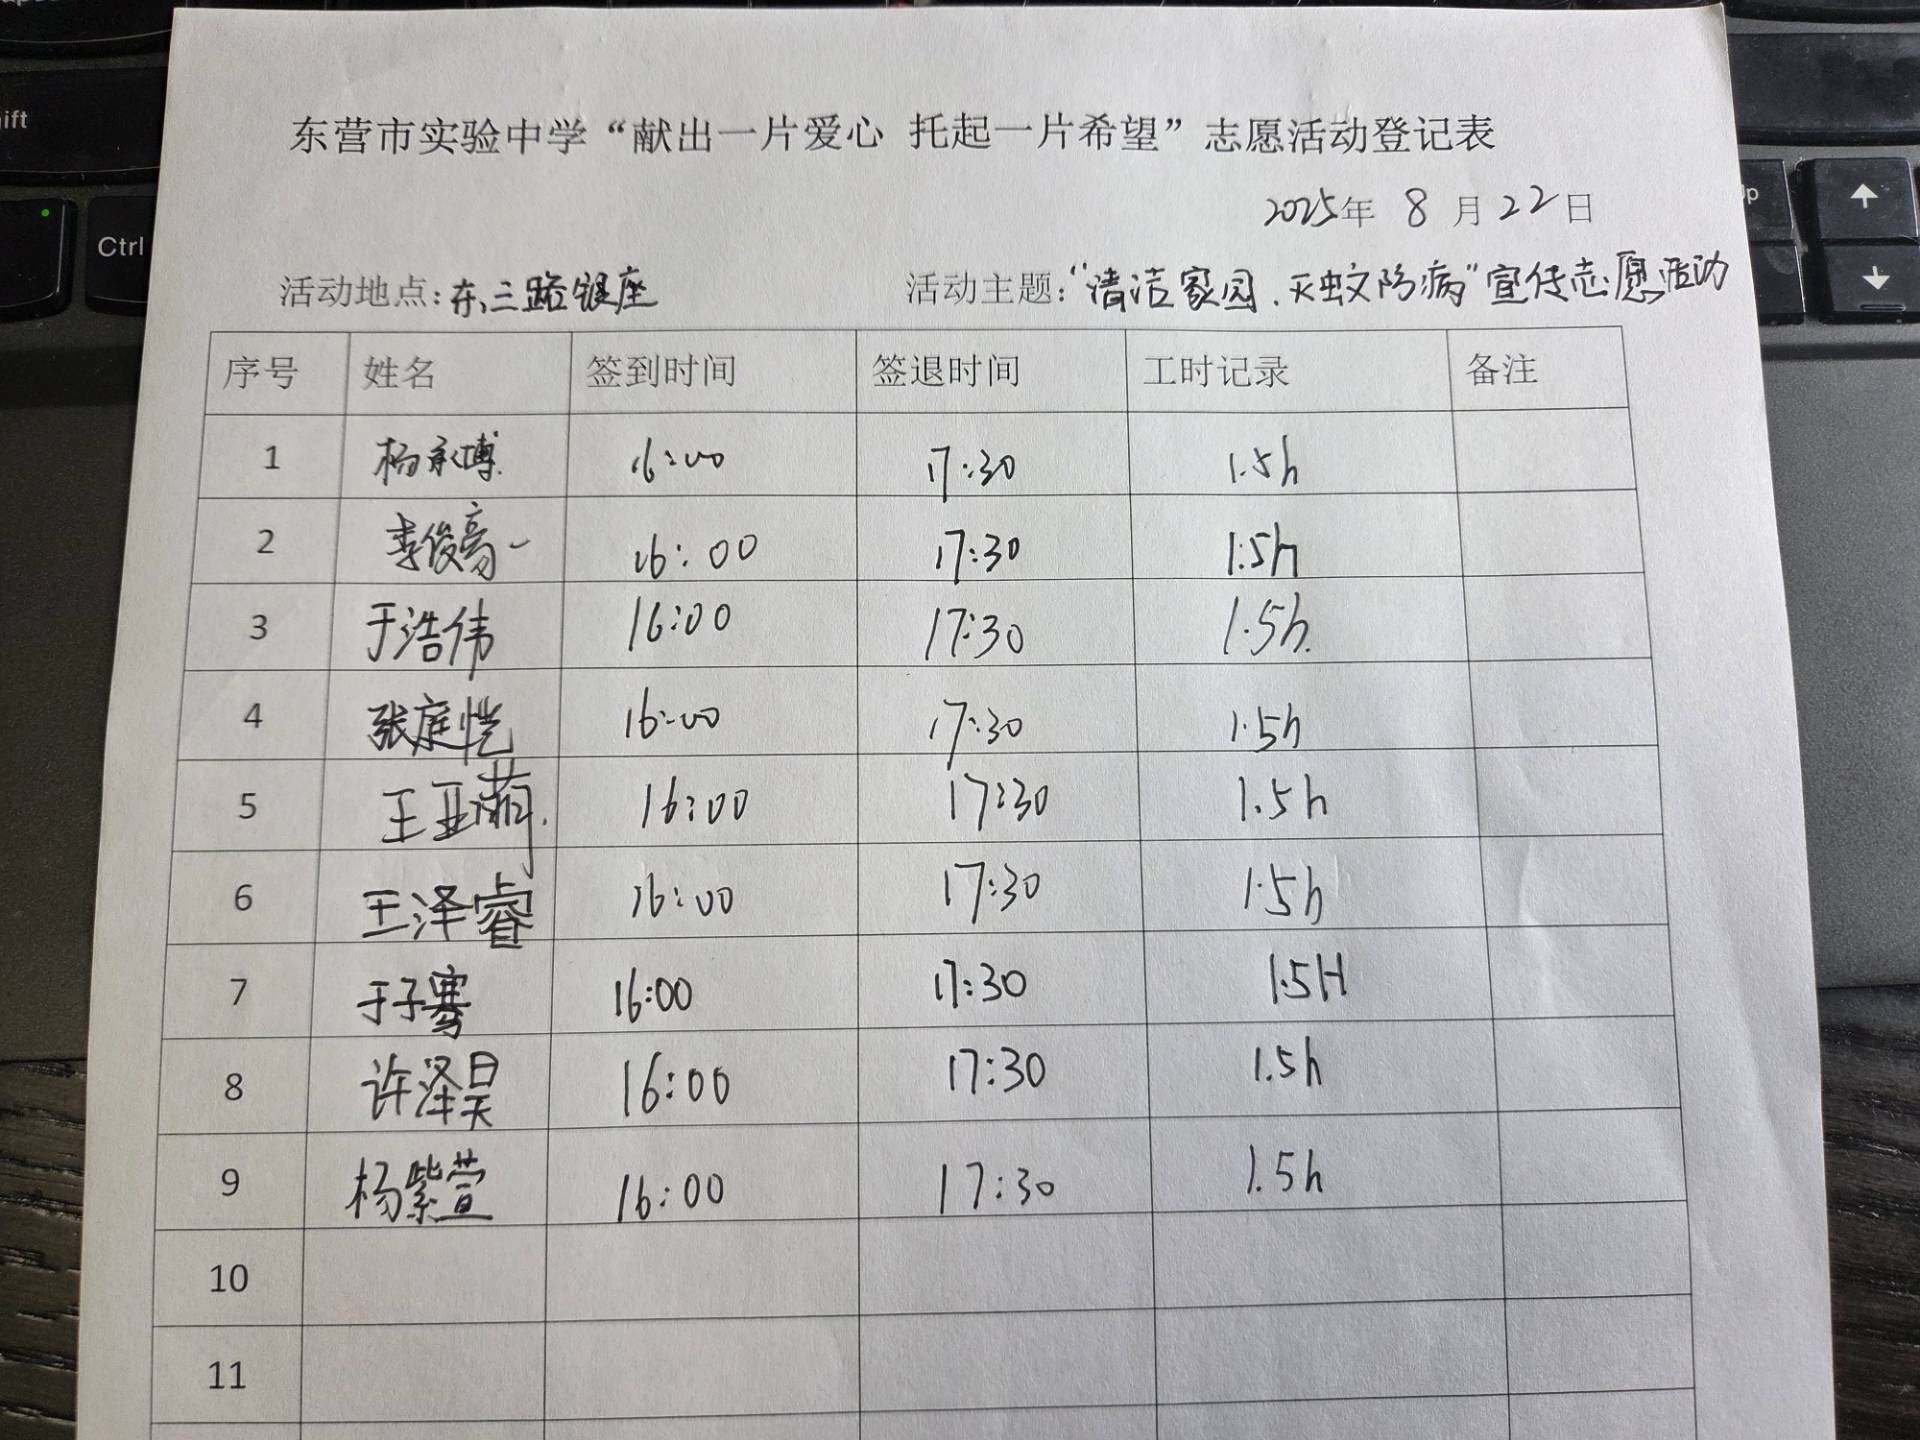 东营市实验中学“献出一片爱心 托起一片希望”志愿活动登记表
2025年 8 月 22 日
活动地点：东三路银座 活动主题：“清洁家园、灭蚊防病”宣传志愿活动
序号 姓名 签到时间 签退时间 工时记录 备注
1 杨承博 16:00 17:30 1.5h
2 李俊 16:00 17:30 1.5h
3 于浩伟 16:00 17:30 1.5h
4 张庭恺 16:00 17:30 1.5h
5 王亚 16:00 17:30 1.5h
6 王泽睿 16:00 17:30 1.5h
7 于子骞 16:00 17:30 1.5H
8 许泽昊 16:00 17:30 1.5h
9 杨紫萱 16:00 17:30 1.5h
10
11
Ctrl